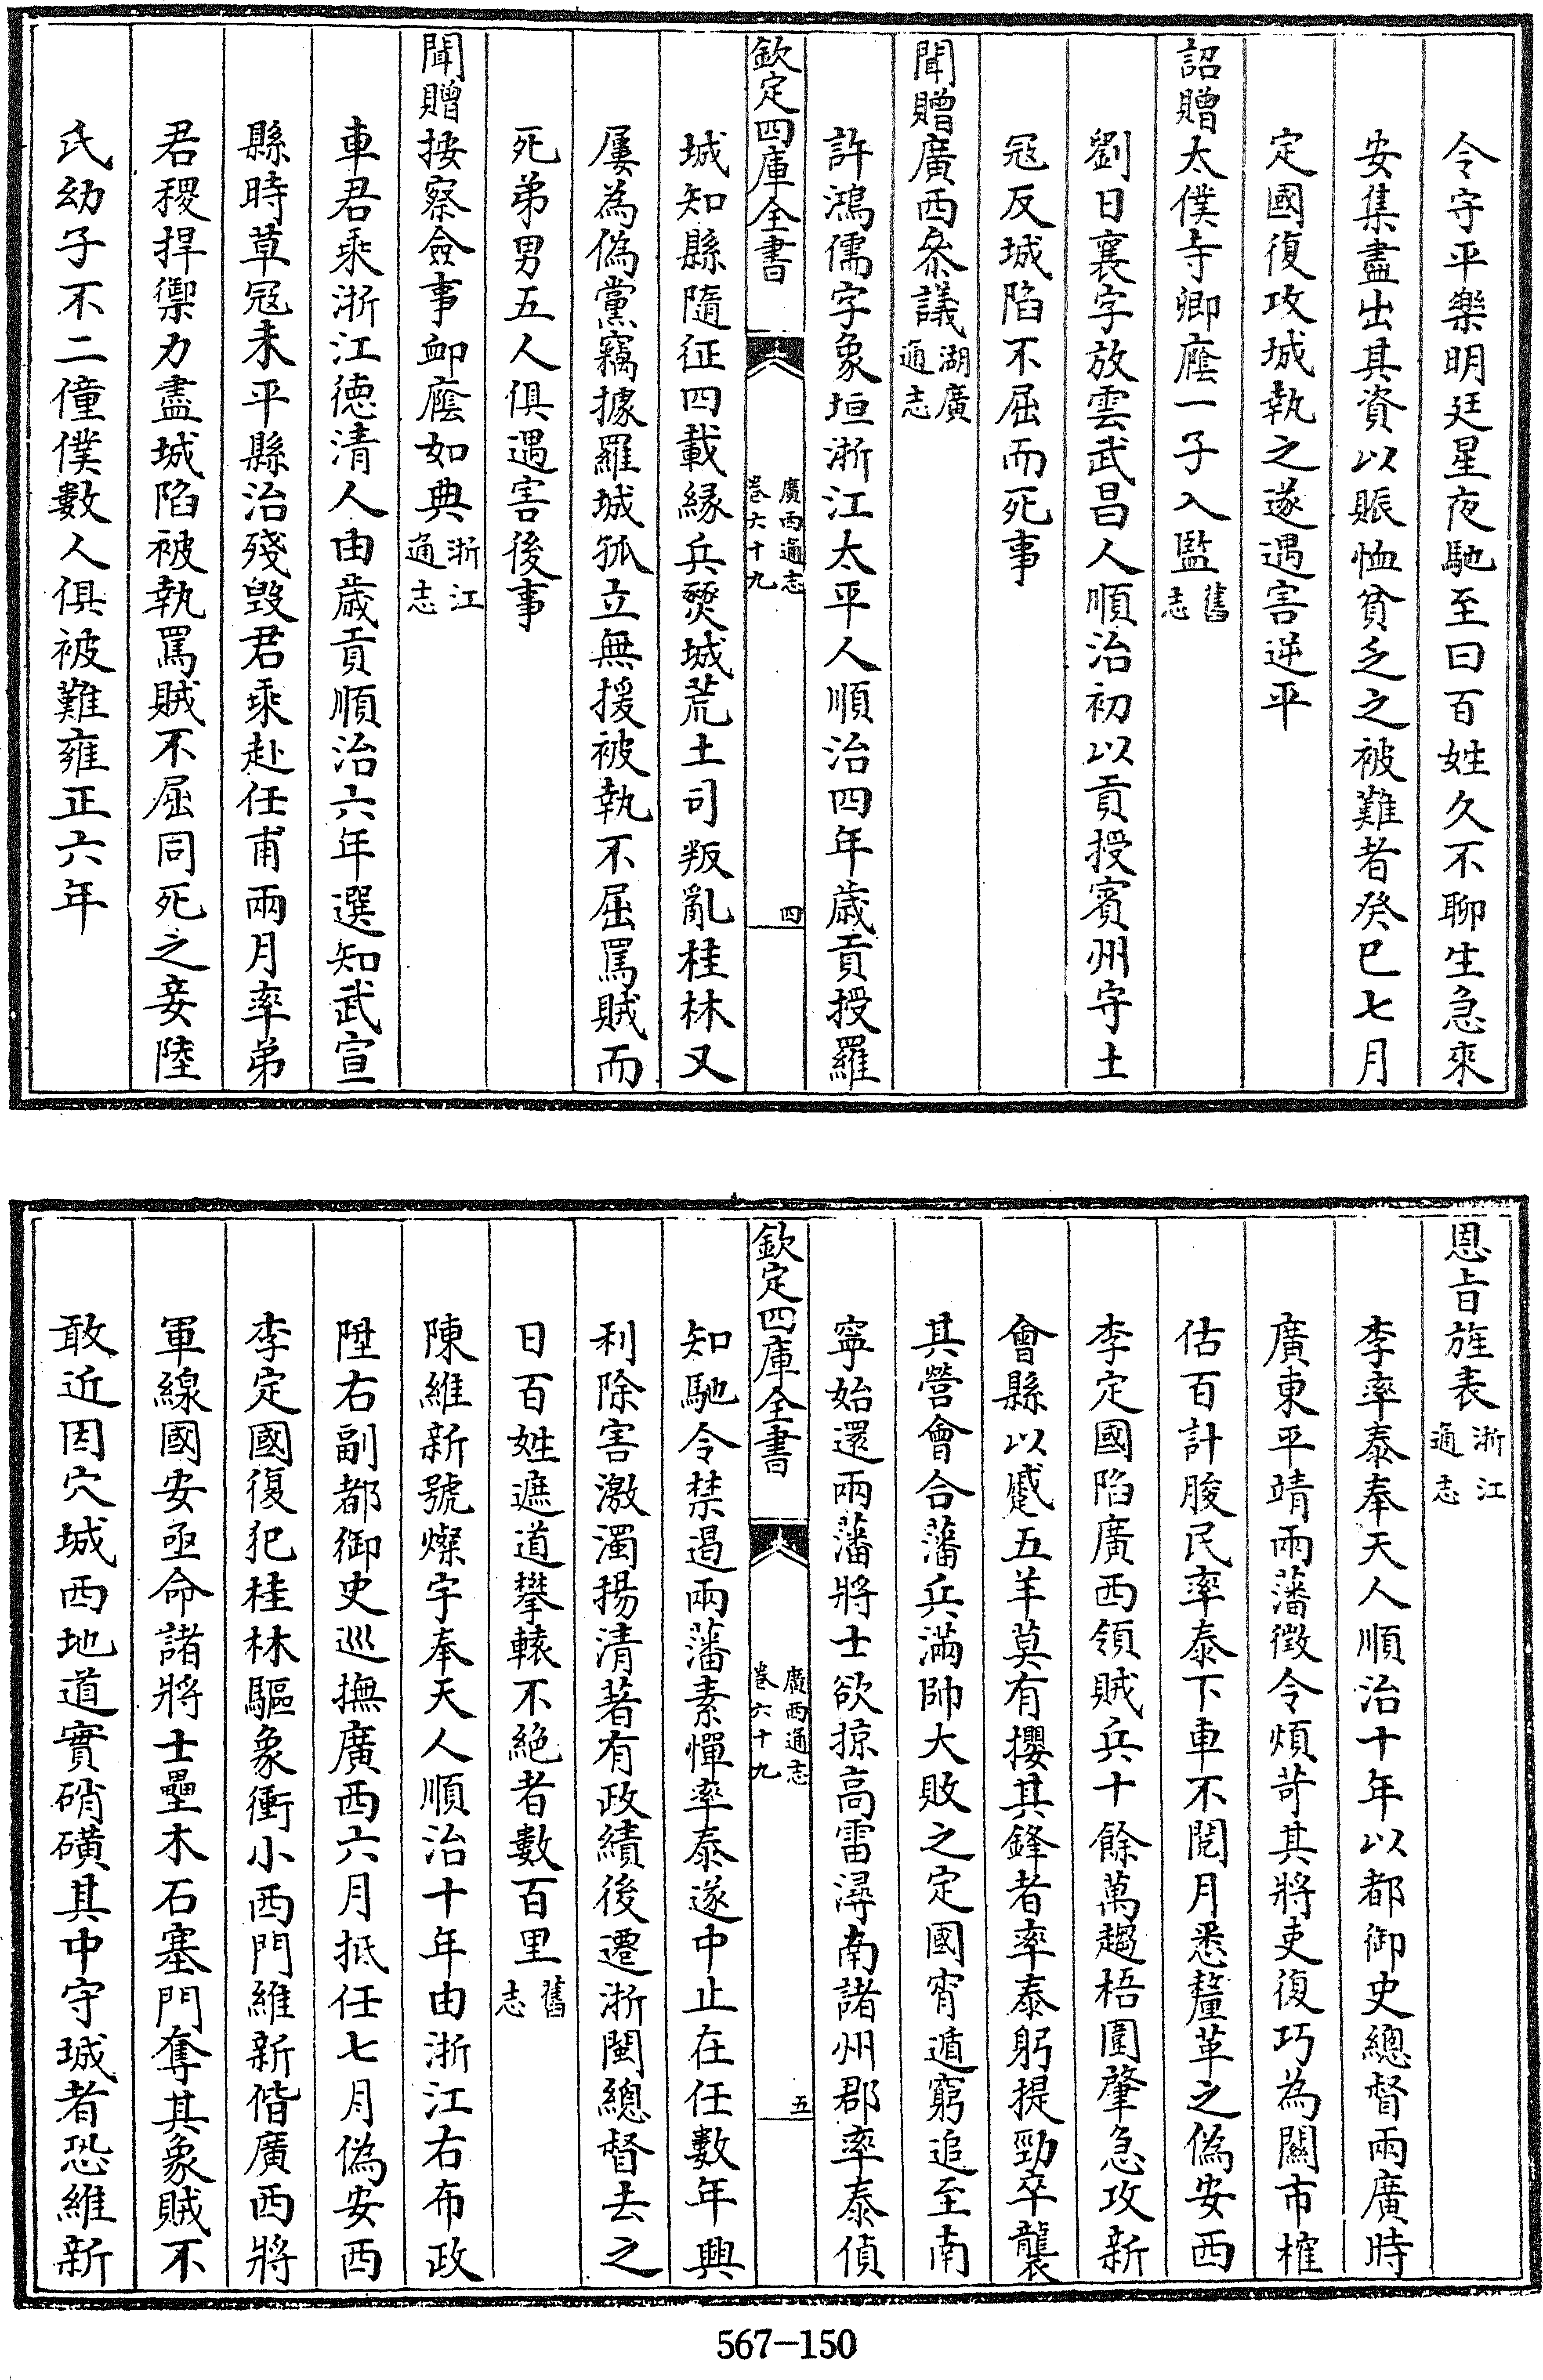 令守平樂明廷星夜馳至曰百姓久不聊生急來
安集盡出其資以賑恤貧乏之被難者癸巳七月
定國復攻城執之遂遇害逆平
詔贈太僕寺卿廕一子入監舊志
劉日襄字放雲武昌人順治初以貢授賓州守土
冦反城陷不屈而死事
聞贈廣西叅議湖廣通志
許鴻儒字象垣浙江太平人順治四年歲貢授羅
欽定四庫全書
廣西通志
卷六十九
四
城知縣隨征四載緣兵燹城荒土司叛亂桂林又
屢為偽黨竊據羅城孤立無援被執不屈罵賊而
死弟男五人俱遇害後事
聞贈按察僉事卹廕如典浙江通志
車君乘浙江德清人由歲貢順治六年選知武宣
縣時草冦未平縣治殘毀君乘赴任甫兩月率弟
君稷捍禦力盡城陷被執罵賊不屈同死之妾陸
氏幼子不二僮僕數人俱被難雍正六年
恩旨旌表浙江通志
李率泰奉天人順治十年以都御史總督兩廣時
廣東平靖兩藩徵令煩苛其將吏復巧為關市榷
估百計朘民率泰下車不閱月悉釐革之偽安西
李定國陷廣西領賊兵十餘萬趨梧圍肇急攻新
會縣以蹙五羊莫有攖其鋒者率泰躬提勁卒襲
其營會合藩兵滿帥大敗之定國宵遁窮追至南
寧始還兩藩將士欲掠高雷潯南諸州郡率泰偵
欽定四庫全書
廣西通志
卷六十九
五
知馳令禁遏兩藩素憚率泰遂中止在任數年興
利除害激濁揚清著有政績後遷浙閩總督去之
日百姓遮道攀轅不絕者數百里舊志
陳維新號燦宇奉天人順治十年由浙江右布政
陞右副都御史巡撫廣西六月抵任七月偽安西
李定國復犯桂林驅象衝小西門維新偕廣西將
軍線國安亟命諸將士壘木石塞門奪其象賊不
敢近因穴城西地道實硝磺其中守城者恐維新
567-150